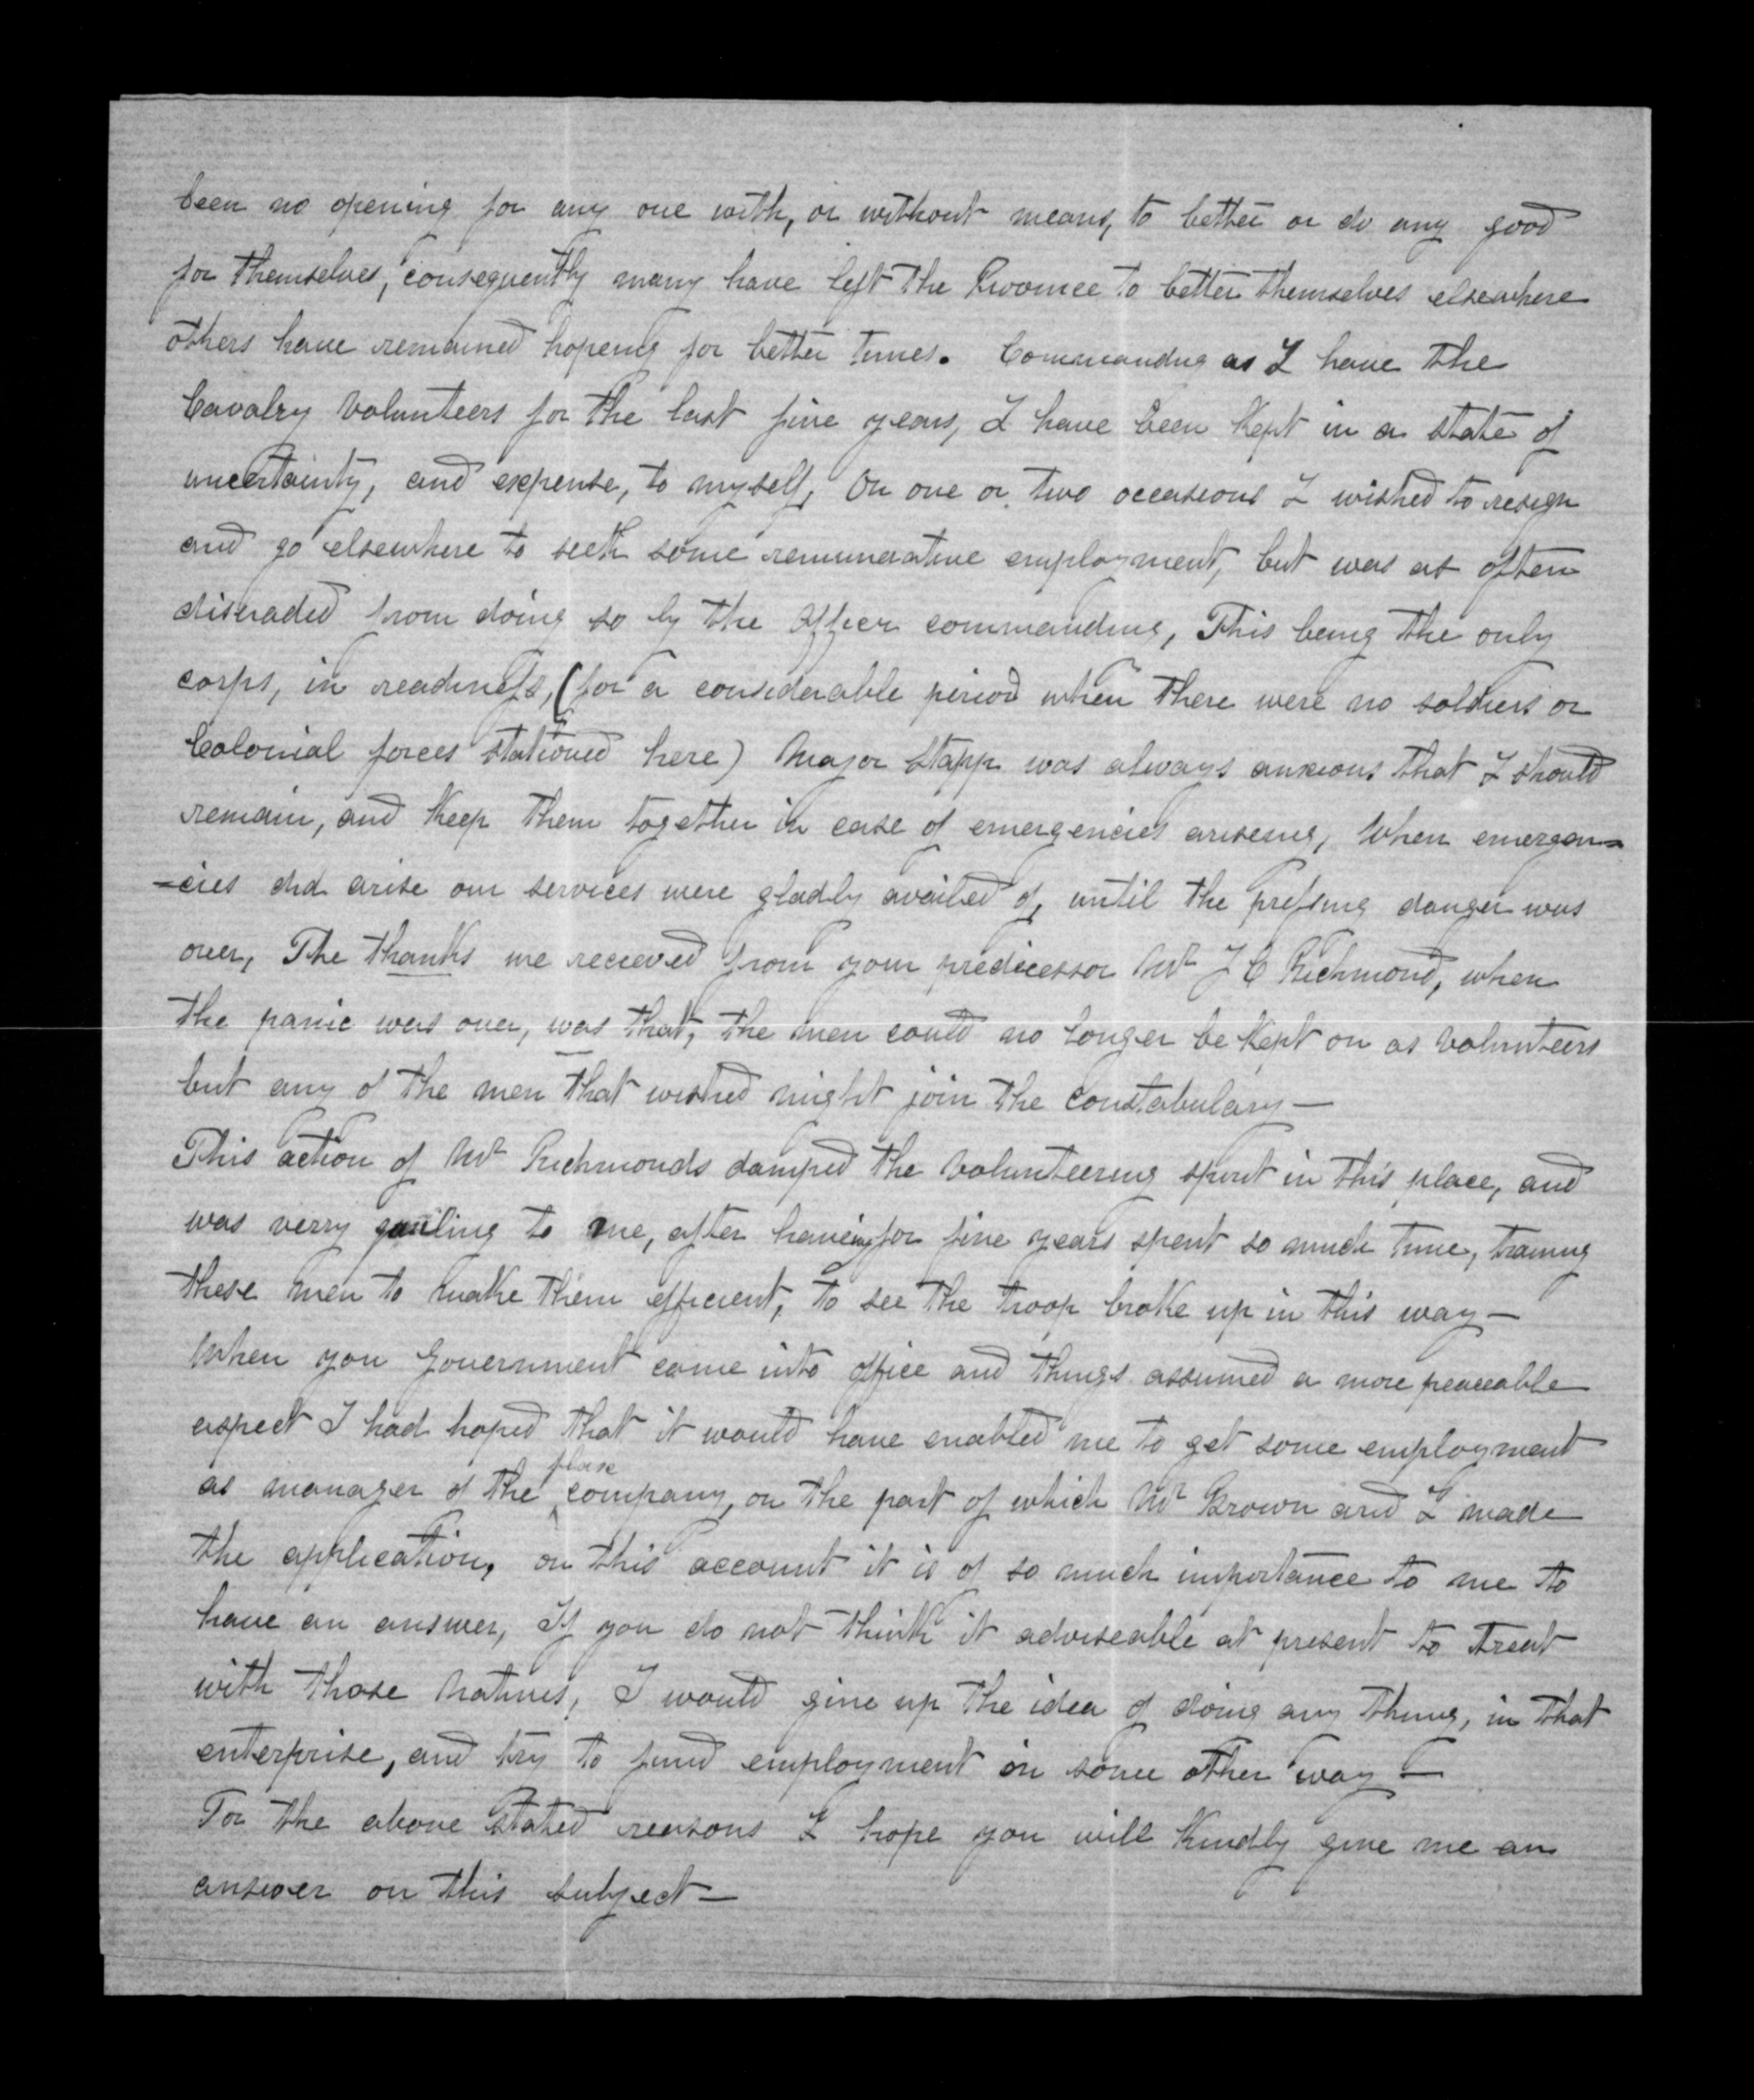 been no opening for any one with, or without means, to better or do any good
for themselves, consequently many have left the Province to better themselves elsewhere
others have remained hopeing for better times. Commanding as I have the
Cavalry Volunteers for the last five years, I have been kept in a state of
uncertainty, and expense, to myself, On one or two occasions I wished to resign
and go elsewhere to seek some remunerative employment, but was as often
disuaded from doing so by the Officer commanding, This being the only
corps, in readiness, (for a considerable period when there were no soldiers or
Colonial forces stationed here) Major Stapp was always anxious that I should
remain, and keep them together in case of emergencies ariseing, When emergen=
=cies did arise our services were gladly availed of, until the pressing danger was
over, The thanks we recieved from your predecessor Mr J C Richmond, when
the panic was over, was that, the men could no longer be kept on as Volunteers
but any of the men that wished might join the Constabulary —
This action of Mr Richmonds damped the Volunteering spirit in this place, and
was verry galling to me, after haveing for five years spent so much time, training
these men to make them efficient, to see the troop broke up in this way —
When you Government came into office and things assumed a more peaceable
aspect I had hoped that it would have enabled me to get some employment
as manager of the flax company, on the part of which Mr Brown and I made
the application, on this account it is of so much importance to me to
have an answer, If you do not think it adviseable at present to treat
with those Natives, I would give up the idea of doing any thing, in that
enterprise, and try to find employment in some other way —
For the above stated reasons I hope you will kindly give me an
answer on this subject —